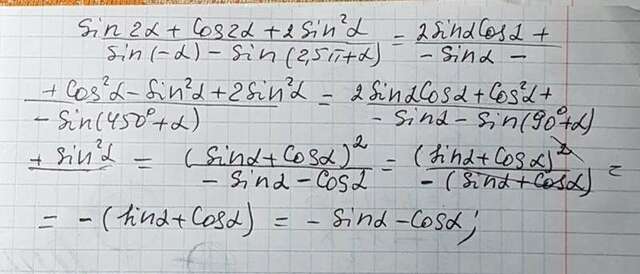 Sin 2α + Cos 2α + 2 Sin²α / Sin(-α) - Sin(2,5π+α) = 2 Sinα Cosα + / - Sinα -
+ Cos²α - Sin²α + 2 Sin²α / - Sin(450° + α) = 2 Sinα Cosα + Cos²α + / - Sinα - Sin(90°+α)
+ Sin²α = (Sinα + Cosα)² / - Sinα - Cosα = (Sinα + Cosα)² / - (Sinα + Cosα) =
= - (Sinα + Cosα) = - Sinα - Cosα;